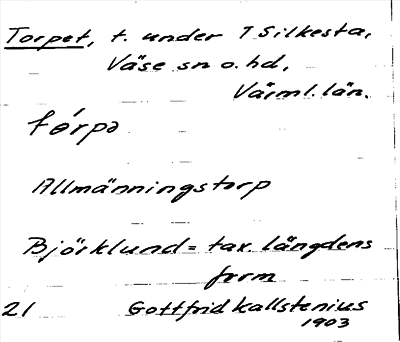 Torpet, t. under 1 Silkesta,
Väse sn o. hd,
Värml. län.
tórpə
Allmänningstorp
Björklund = tax. längdens
form
21 Gottfrid Kallstenius
1903